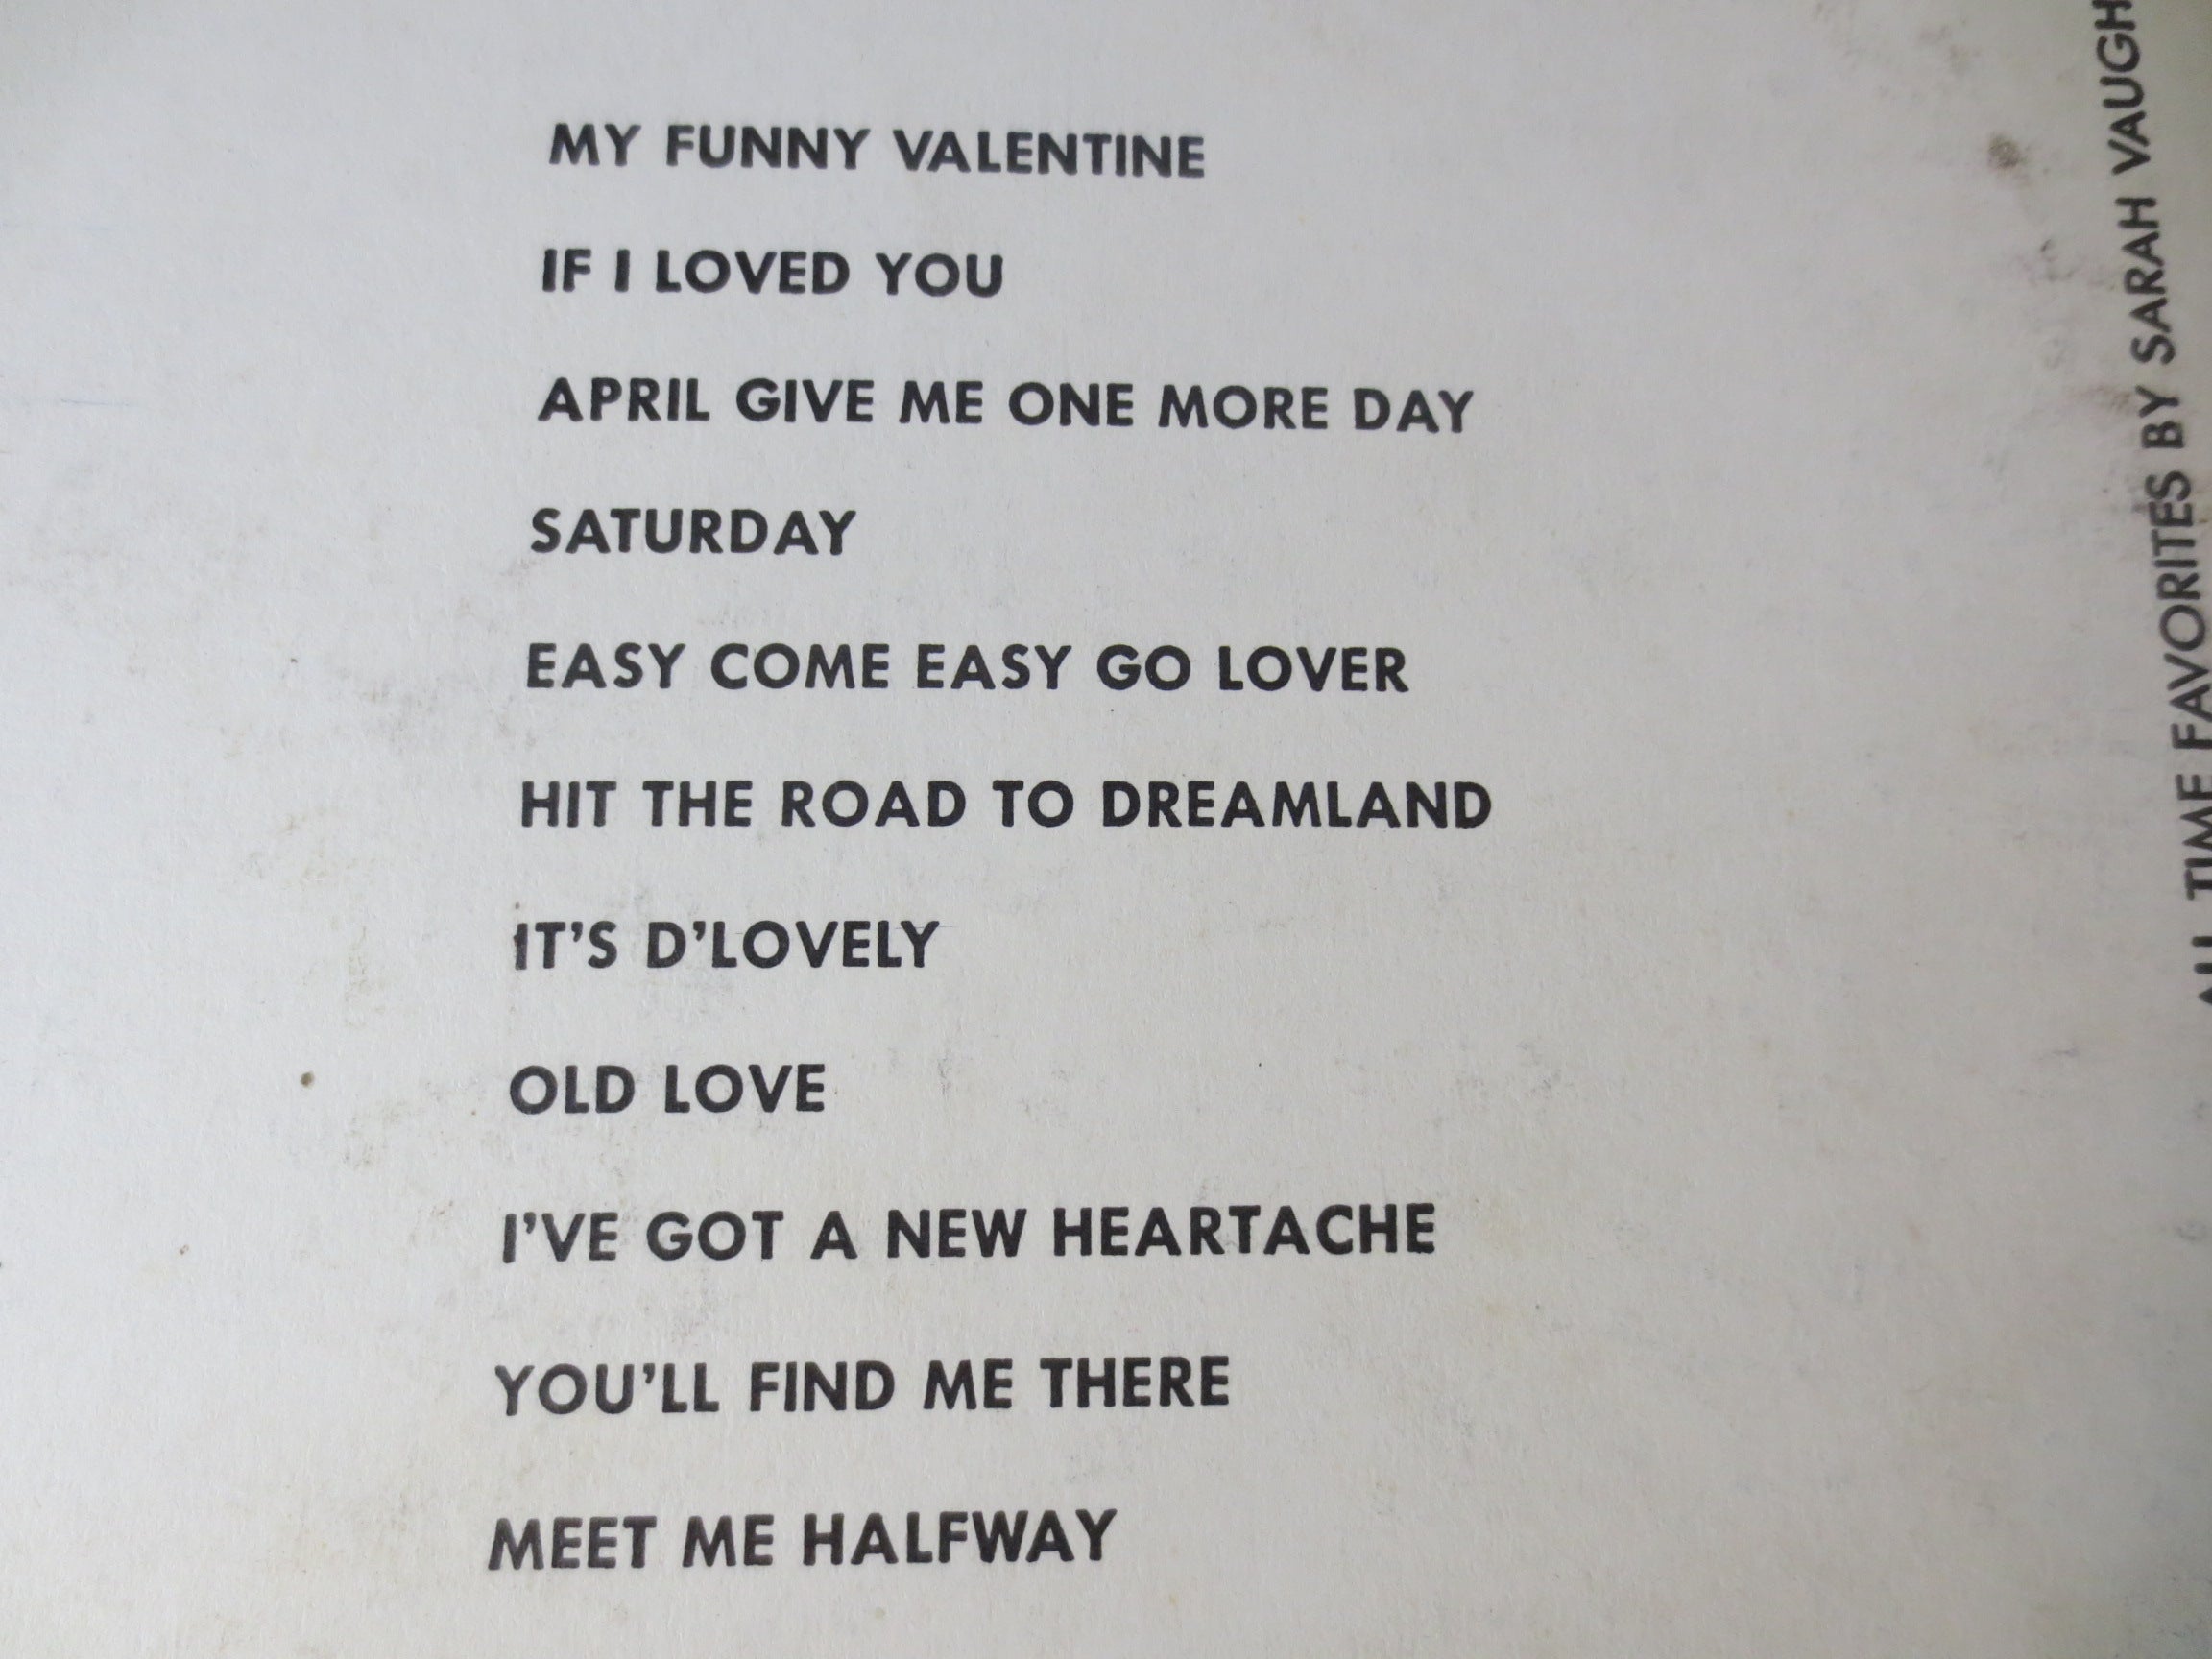 MY FUNNY VALENTINE
IF I LOVED YOU
APRIL GIVE ME ONE MORE DAY
SATURDAY
EASY COME EASY GO LOVER
HIT THE ROAD TO DREAMLAND
IT'S D'LOVELY
OLD LOVE
I'VE GOT A NEW HEARTACHE
YOU'LL FIND ME THERE
MEET ME HALFWAY
ALL TIME FAVORITES BY SARAH VAUGH